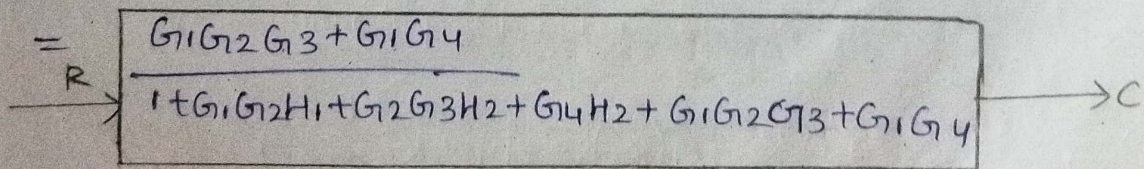 =
G1G2G3+G1G4
R
1+G1G2H1+G2G3H2+G4H2+G1G2G3+G1G4
C